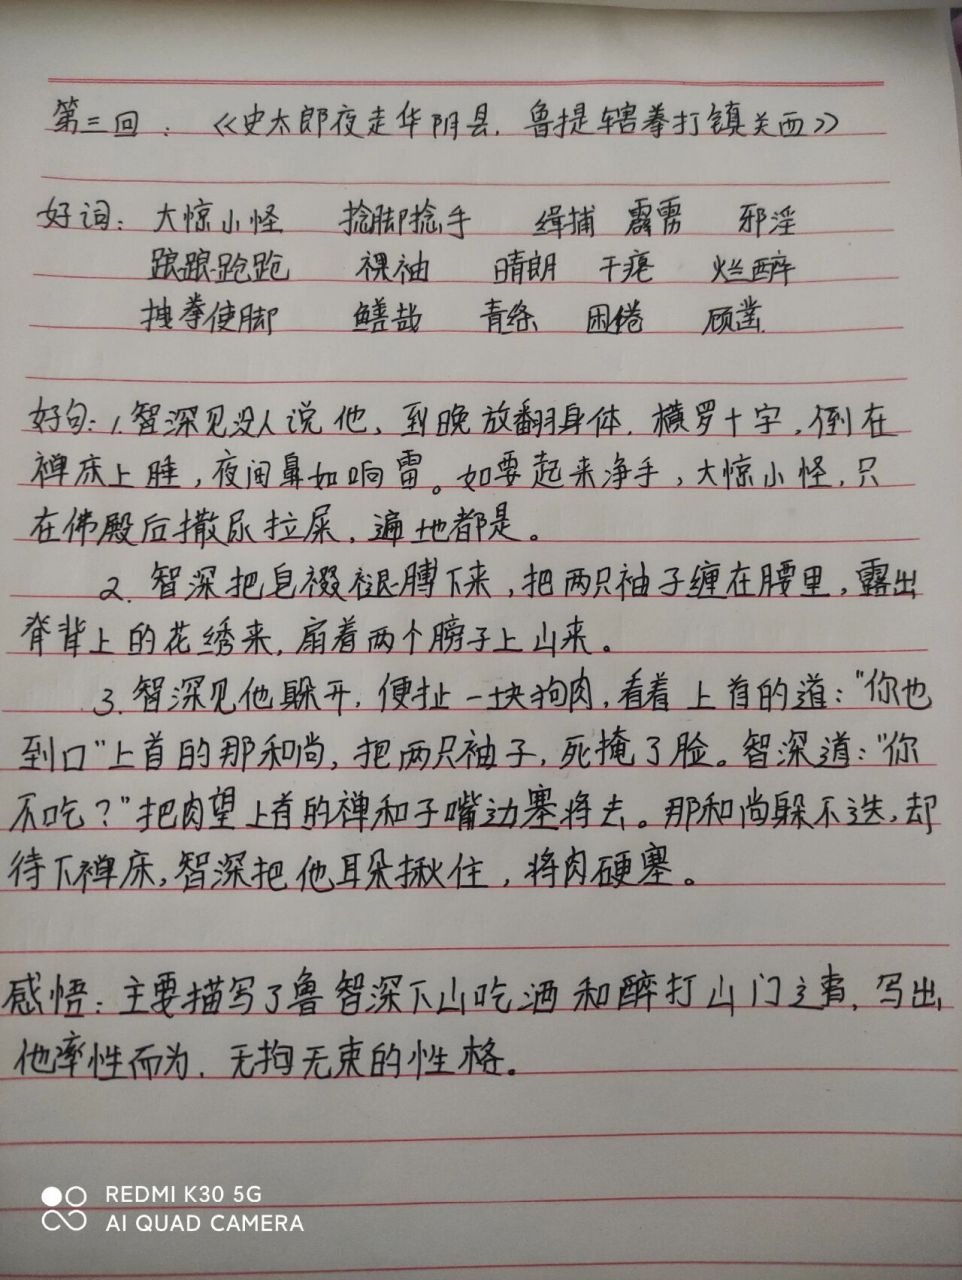 第三回：《史太郎夜走华阴县，鲁提辖拳打镇关西》
好词：大惊小怪 捻脚捻手 缉捕 霹雳 邪淫
踉踉跄跄 裸袖 晴朗 干瘪 烂醉
拽拳使脚 鳝哉 青绦 困倦 顾凿
好句：1.智深见没人说他，到晚放翻身体，横罗十字，倒在
禅床上睡，夜间鼻如响雷。如要起来净手，大惊小怪，只
在佛殿后撒尿拉屎，遍地都是。
2.智深把皂裰褪膊下来，把两只袖子缠在腰里，露出
脊背上的花绣来，扇着两个膀子上山来。
3.智深见他躲开，便扯一块狗肉，看着上首的道："你也
到口"上首的那和尚，把两只袖子，死掩了脸。智深道："你
不吃？"把肉望上首的禅和子嘴边塞将去。那和尚躲不迭，却
待下禅床，智深把他耳朵揪住，将肉硬塞。
感悟：主要描写了鲁智深下山吃酒和醉打山门之事，写出
他率性而为，无拘无束的性格。
REDMI K30 5G
AI QUAD CAMERA